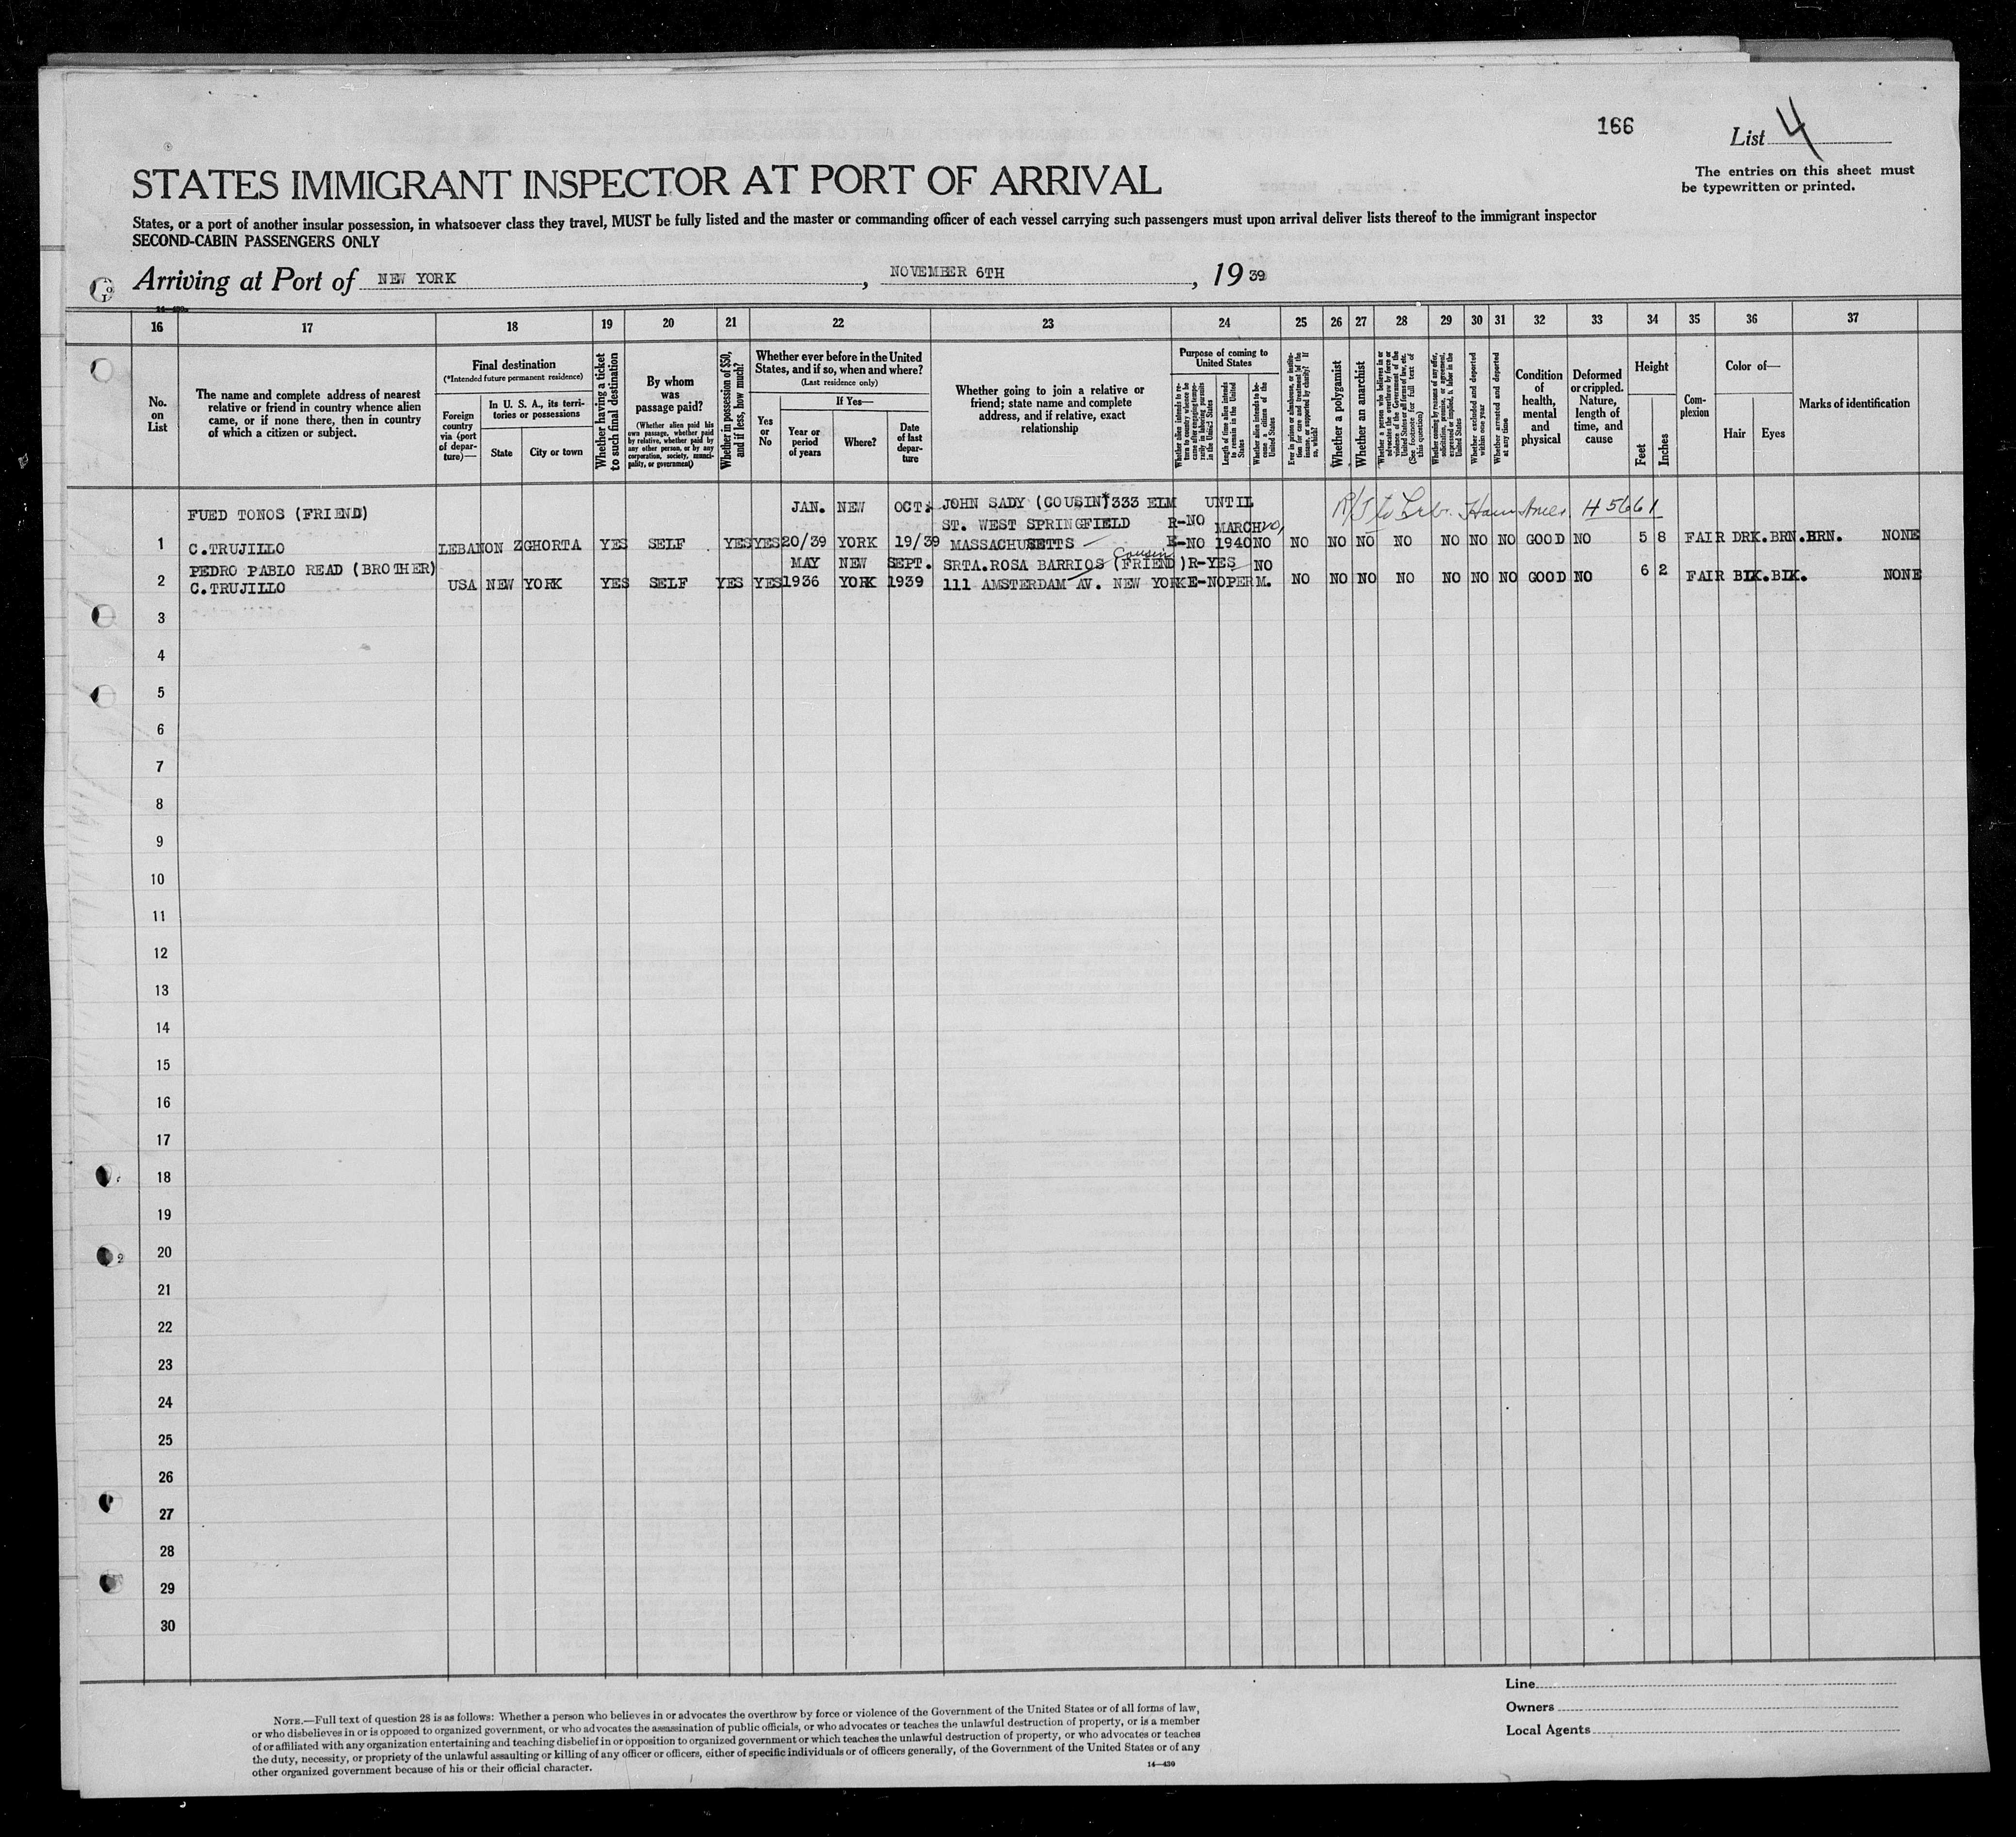 166
List 4
The entries on this sheet must
be typewritten or printed.
STATES IMMIGRANT INSPECTOR AT PORT OF ARRIVAL
States, or a port of another insular possession, in whatsoever class they travel, MUST be fully listed and the master or commanding officer of each vessel carrying such passengers must upon arrival deliver lists thereof to the immigrant inspector
SECOND-CABIN PASSENGERS ONLY
Arriving at Port of NEW YORK, NOVEMBER 6TH, 19 39
16 17 18 19 20 21 22 23 24 25 26 27 28 29 30 31 32 33 34 35 36 37
No.
on
List
The name and complete address of nearest
relative or friend in country whence alien
came, or if none there, then in country
of which a citizen or subject.
Final destination
(*Intended future permanent residence)
Foreign
country
via (port
of depar-
ture)—
In U. S. A., its terri-
tories or possessions
State
City or town
Whether having a ticket
to such final destination
By whom
was
passage paid?
(Whether alien paid his
own passage, whether paid
by relative, whether paid by
any other person, or by any
corporation, society, munici-
pality, or government)
Whether in possession of $50,
and if less, how much?
Whether ever before in the United
States, and if so, when and where?
(Last residence only)
Yes
or
No
If Yes—
Year or
period
of years
Where?
Date
of last
depar-
ture
Whether going to join a relative or
friend; state name and complete
address, and if relative, exact
relationship
Purpose of coming to
United States
Whether alien intends to re-
turn to country whence he
came after engaging tempo-
rarily in laboring pursuits
in the United States
Length of time alien intends
to remain in the United
States
Whether alien intends to be-
come a citizen of the
United States
Ever in prison or almshouse, or institu-
tion for care and treatment of the
insane, or supported by charity? If
so, which?
Whether a polygamist
Whether an anarchist
Whether a person who believes in or
advocates the overthrow by force or
violence of the Government of the
United States or all forms of law, etc.
(See footnote for full text of
this question)
Whether coming by reasons of any offer,
solicitation, promise, or agreement,
expressed or implied, to labor in the
United States
Whether excluded and deported
within one year
Whether arrested and deported
at any time
Condition
of
health,
mental
and
physical
Deformed
or crippled.
Nature,
length of
time, and
cause
Height
Feet
Inches
Com-
plexion
Color of—
Hair
Eyes
Marks of identification
FUED TONOS (FRIEND) JAN. NEW OCT. JOHN SADY (COUSIN) 333 ELM UNTIL H 5661
ST. WEST SPRINGFIELD R-NO MARCH
1 C.TRUJILLO LEBANON ZGHORTA YES SELF YES YES 20/39 YORK 19/39 MASSACHUSETTS E-NO 1940 NO NO NO NO NO NO NO NO GOOD NO 5 8 FAIR DRK.BRN. BRN. NONE
PEDRO PABLO READ (BROTHER) MAY NEW SEPT. SRTA.ROSA BARRIOS (FRIEND) Cousin R-YES NO
2 C.TRUJILLO USA NEW YORK YES SELF YES YES 1936 YORK 1939 111 AMSTERDAM AV. NEW YORK E-NO PERM. NO NO NO NO NO NO NO GOOD NO 6 2 FAIR BLK. BLK. NONE
3
4
5
6
7
8
9
10
11
12
13
14
15
16
17
18
19
20
21
22
23
24
25
26
27
28
29
30
Line
Owners
Local Agents
NOTE.—Full text of question 28 is as follows: Whether a person who believes in or advocates the overthrow by force or violence of the Government of the United States or of all forms of law,
or who disbelieves in or is opposed to organized government, or who advocates the assassination of public officials, or who advocates or teaches the unlawful destruction of property, or is a member
of or affiliated with any organization entertaining and teaching disbelief in or opposition to organized government or which teaches the unlawful destruction of property, or who advocates or teaches
the duty, necessity, or propriety of the unlawful assaulting or killing of any officer or officers, either of specific individuals or of officers generally, of the Government of the United States or of any
other organized government because of his or their official character.
14—430